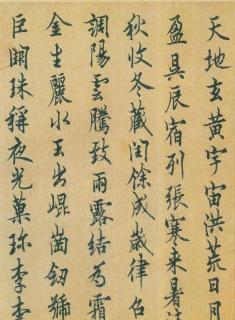 天地玄黃宇宙洪荒日月
盈昃辰宿列張寒来暑
秋收冬藏閏餘成歲律召
調陽雲騰致雨露結為霜
金生麗水玉出崐崗劒號
巨闕珠稱夜光菓珍李